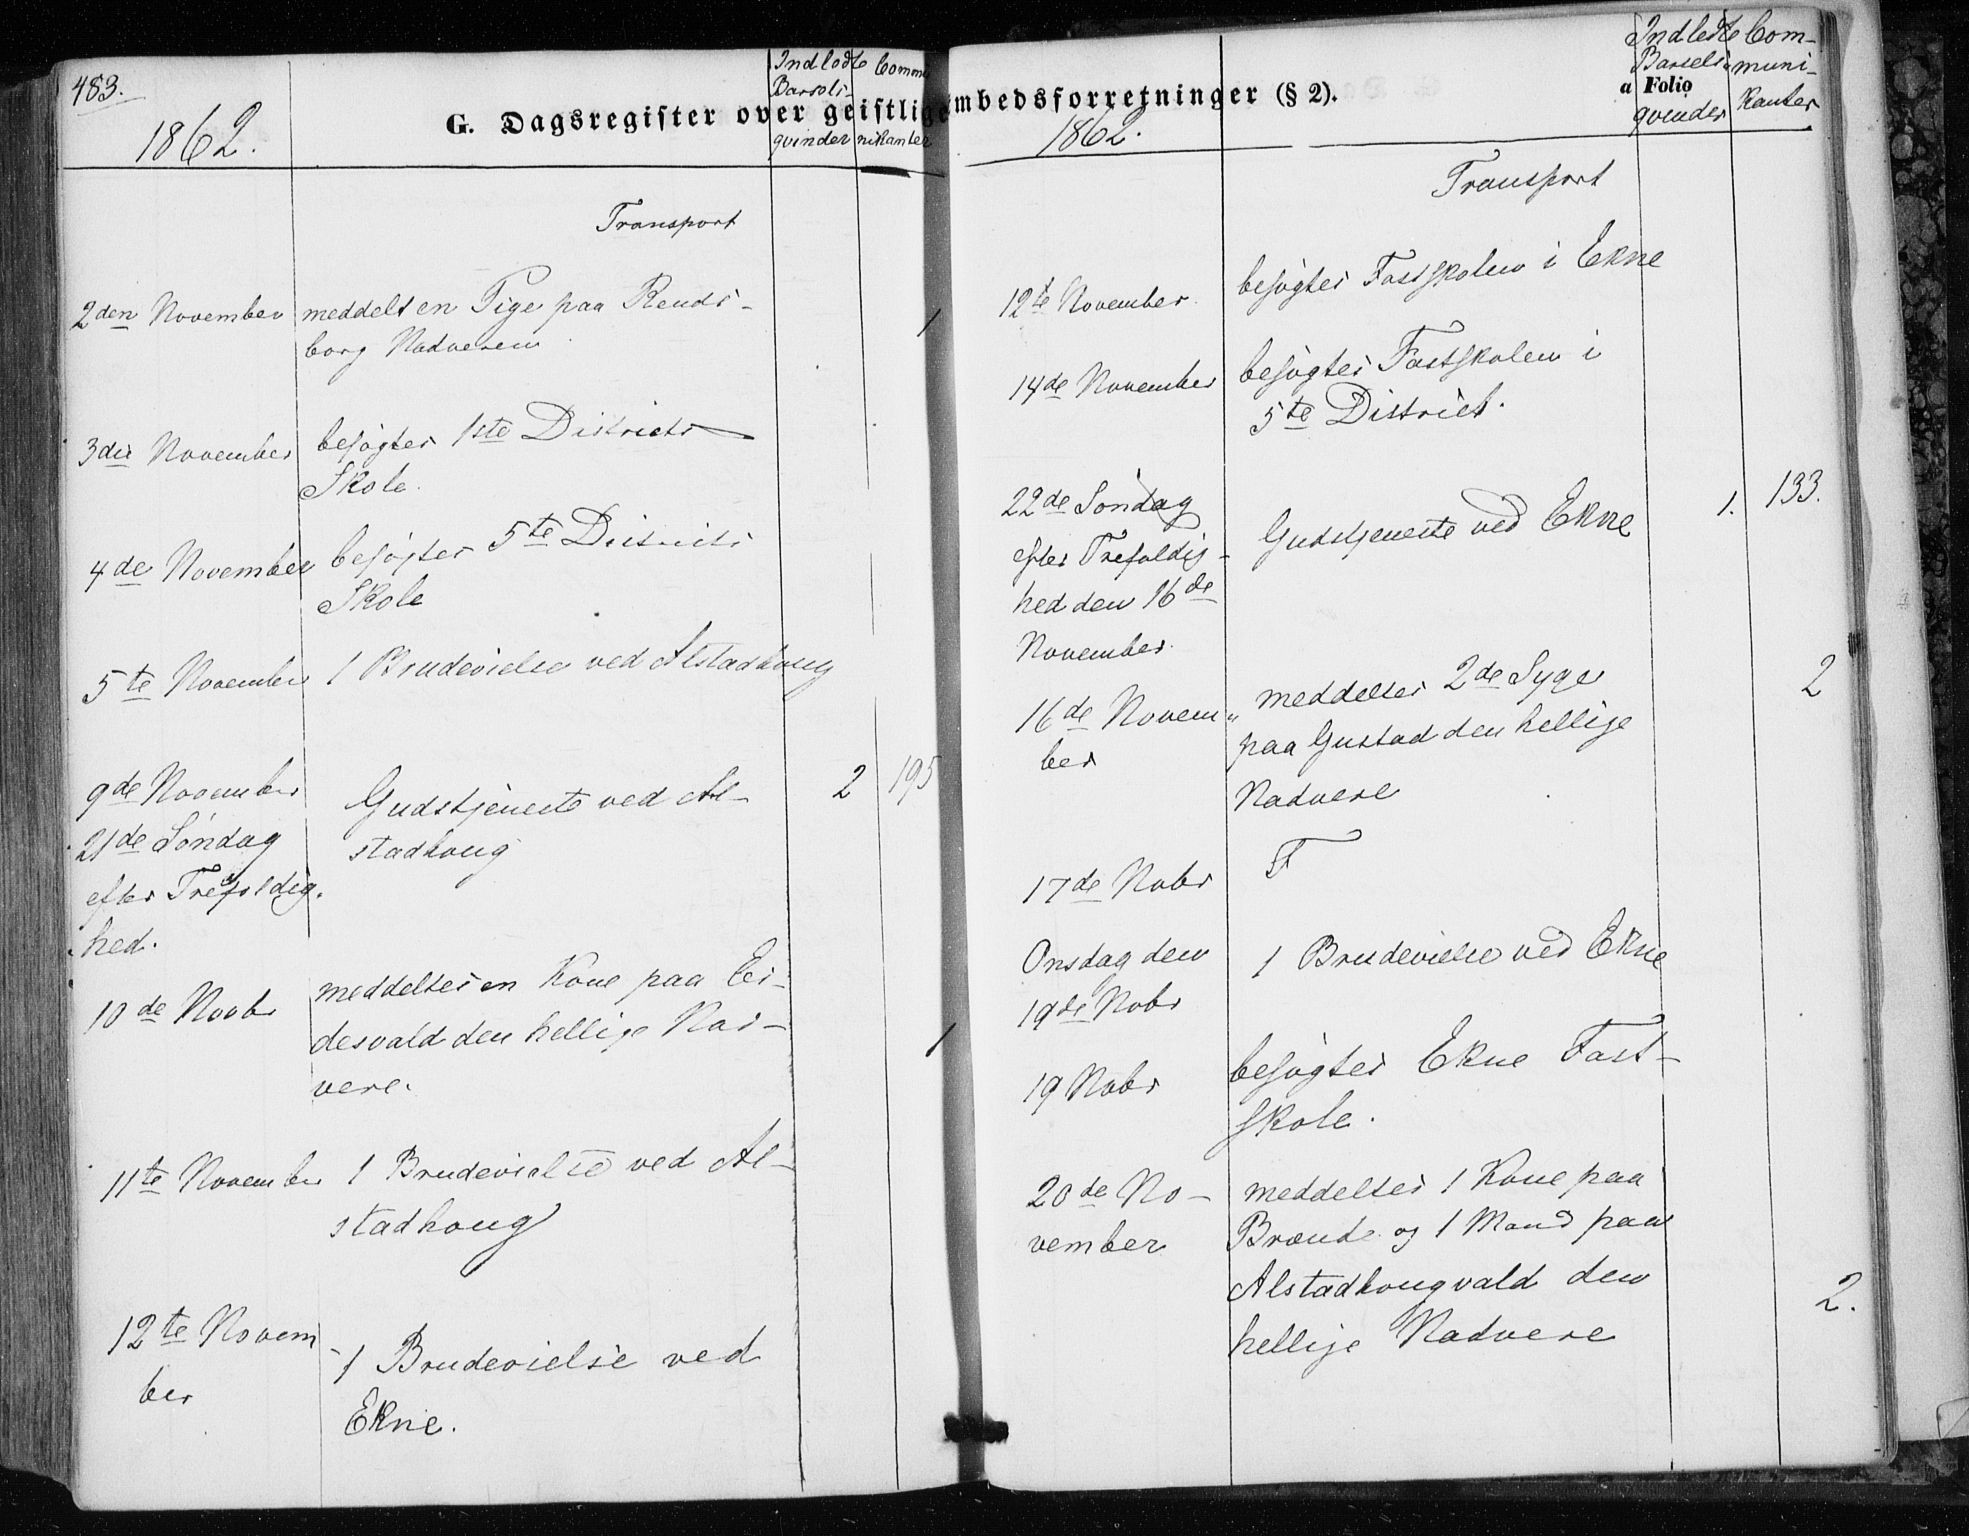 483.
G. Dagsregister over geistlige
1862.
Indledte
Barsels-
qvinder
Commu
nikanter
Transport
2den November meddelt en Pige paa Rends-
borg Nadveren
1
3die November besøgtes 1ste Districts
Skole.
4de November besøgtes 5te Districts
Skole
5te November 1 Brudevielse ved Alstadhoug
9de November
21de Søndag
efter Trefoldig-
hed.
Gudstjeneste ved Al-
stadhoug
2 195
10de Novbr meddeltes en Kone paa Ei-
desvald den hellige Nad-
vere.
1
11te November 1 Brudevielse ved Al-
stadhoug
12te Novem
ber
1 Brudevielse ved
Ekne.
mbedsforretninger (§ 2).
a Folio
1862.
Indledte
Barsels-
qvinder
Com-
muni-
kanter
Transport
12te November besøgtes Fastskolen i Ekne
14de November besøgtes Fastskolen i
5te District.
22de Søndag
efter Trefoldig-
hed den 16de
November.
Gudstjeneste ved Ekne
1. 133.
16de Novem
ber
meddeltes 2de Syge
paa Gustad den hellige
Nadvere
2
17de Nobr F
Onsdag den
19de Nobr
1 Brudevielse ved Ekne
19 Nobr besøgtes Ekne Fast-
skole.
20de No-
vember
meddeltes 1 Kone paa
Brænde og 1 Mand paa
Alstadhougvald den
hellige Nadvere
2.